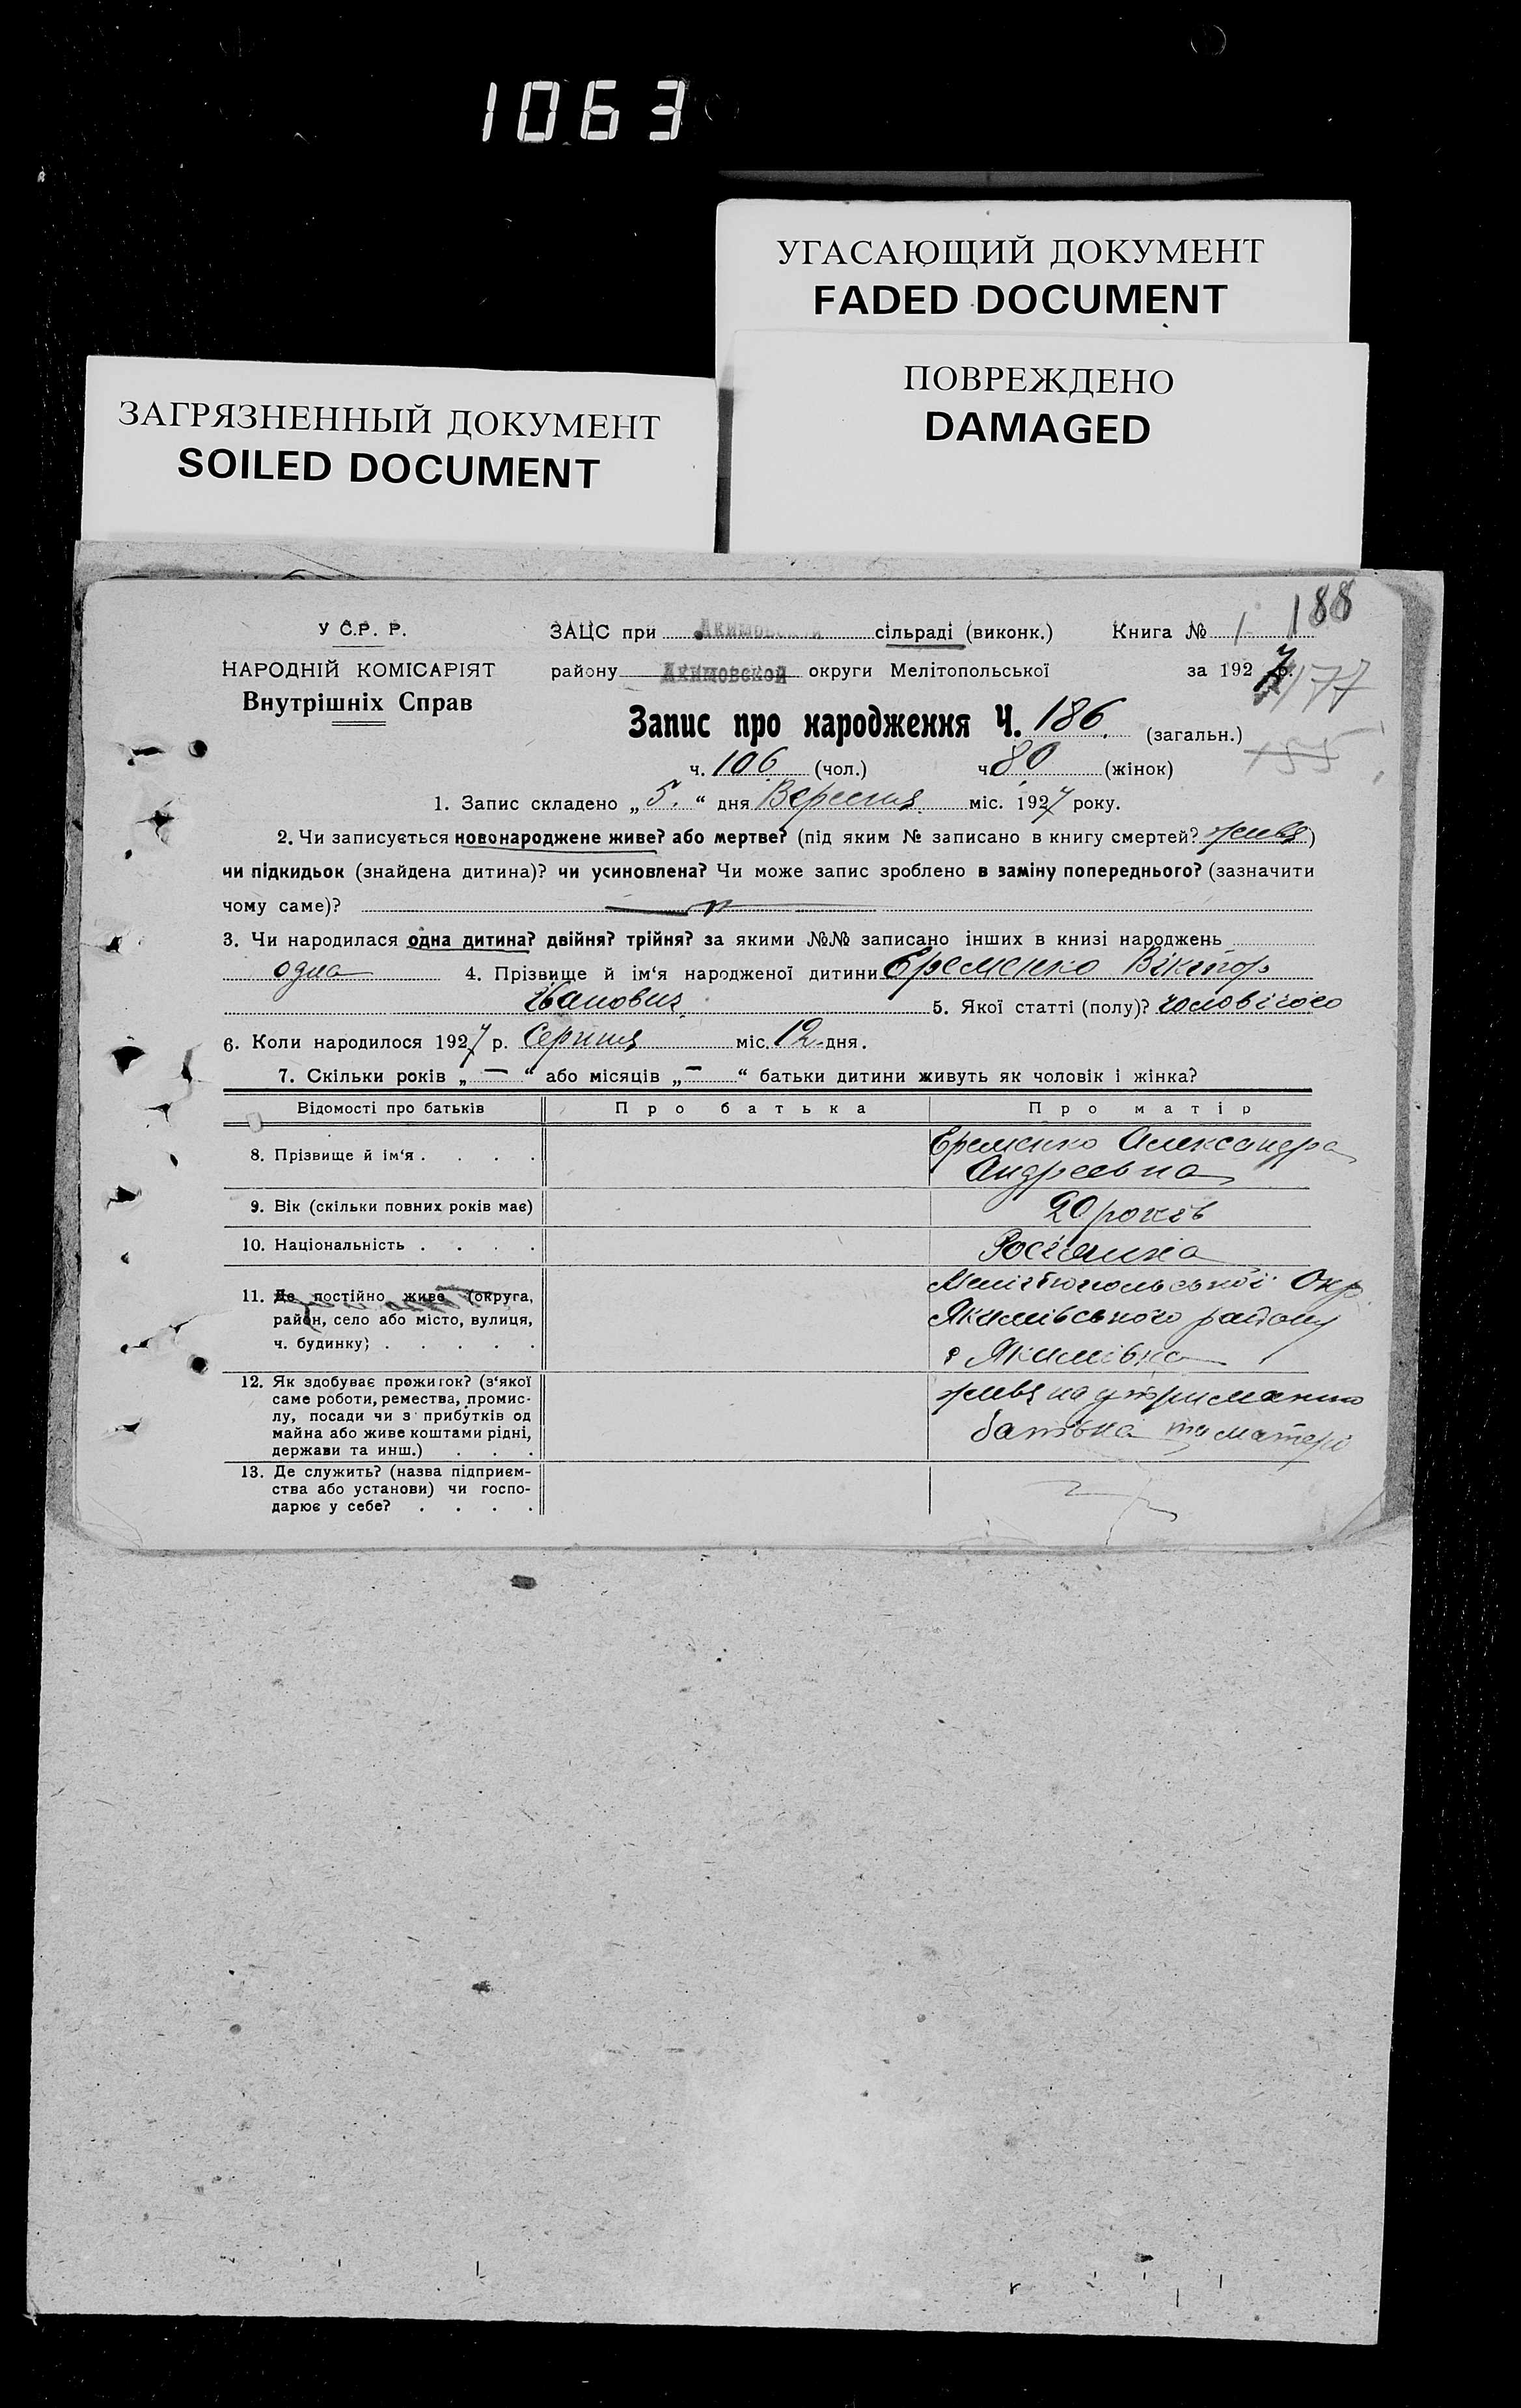 1063
УГАСАЮЩИЙ ДОКУМЕНТ
FADED DOCUMENT
ПОВРЕЖДЕНО
DAMAGED
ЗАГРЯЗНЕННЫЙ ДОКУМЕНТ
SOILED DOCUMENT
188
У С.Р. Р.
ЗАЦС при Акимовской сільраді (виконк.) Книга № 1
НАРОДНІЙ КОМІСАРІЯТ
району Акимовской округи Мелітопольської за 1927 р.
177
Внутрішніх Справ
Запис про народження Ч. 186. (загальн.)
155
ч. 106 (чол.) ч. 80 (жінок)
1. Запис складено „ 5. “ дня Вересня міс. 1927 року.
2. Чи записується новонароджене живе? або мертве? (під яким № записано в книгу смертей? живе)
чи підкидьок (знайдена дитина)? чи усиновлена? Чи може запис зроблено в заміну попереднього? (зазначити
чому саме)?
3. Чи народилася одна дитина? двійня? трійня? за якими №№ записано інших в книзі народжень
одна 4. Прізвище й ім‘я народженої дитини Еременко Віктор
Іванович 5. Якої статті (полу)? чоловічого
6. Коли народилося 1927 р. Серпня міс. 12 дня.
7. Скільки років „ — “ або місяців „ — “ батьки дитини живуть як чоловік і жінка?
Відомості про батьків Про батька Про матір
8. Прізвище й ім‘я . . . . Еременко Александра
Андреевна
9. Вік (скільки повних років має) 20 років
10. Національність . . . . Росіянка
11. Де постійно живе (округа, Мелітопольської Окр.
район, село або місто, вулиця, Якимівського району
ч. будинку) . . . . . с Якимівка
12. Як здобуває прожиток? (з‘якої живе на утриманню
саме роботи, ремества, промис-
лу, посади чи з прибутків од батька та матері
майна або живе коштами рідні,
держави та инш.) . . .
13. Де служить? (назва підприєм-
ства або установи) чи госпо-
дарює у себе? . . . .